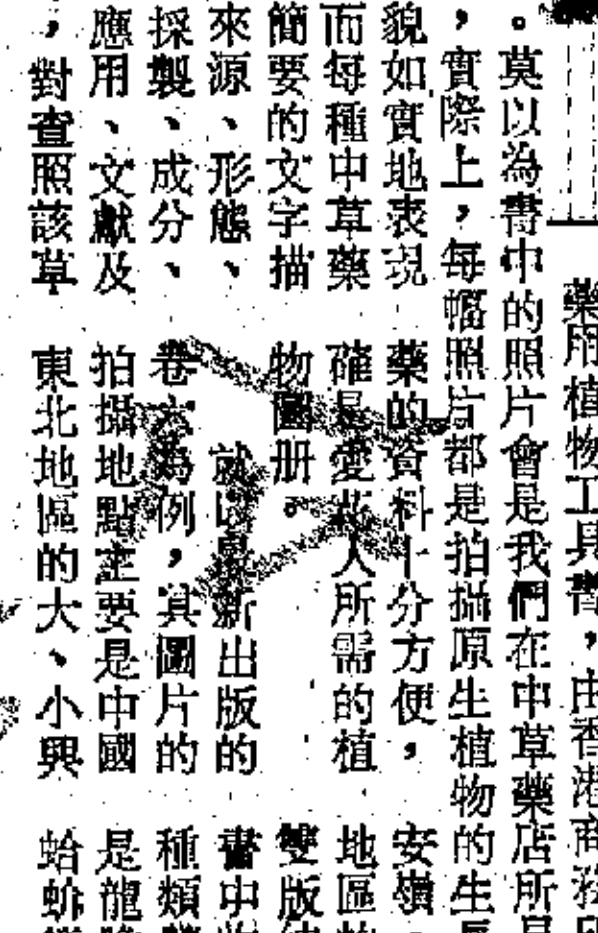 藥用植物工具書,由香港商務
。莫以為書中的照片會是我們在中草藥店所
,實際上,每幅照片都是拍攝原生植物的生
貌如實地表現
而每種中草藥
簡要的文字描
來源、形態、
採製、成分、
應用、文獻及
,對查照該草
藥的資料十分方便,
確是愛花人所需的植
物圖册。
就以最新出版的
卷六為例,其圖片的
拍攝地點主要是中國
東北地區的大、小興
安嶺
地區
雙版
書中
種類
是龍
蛤蚧